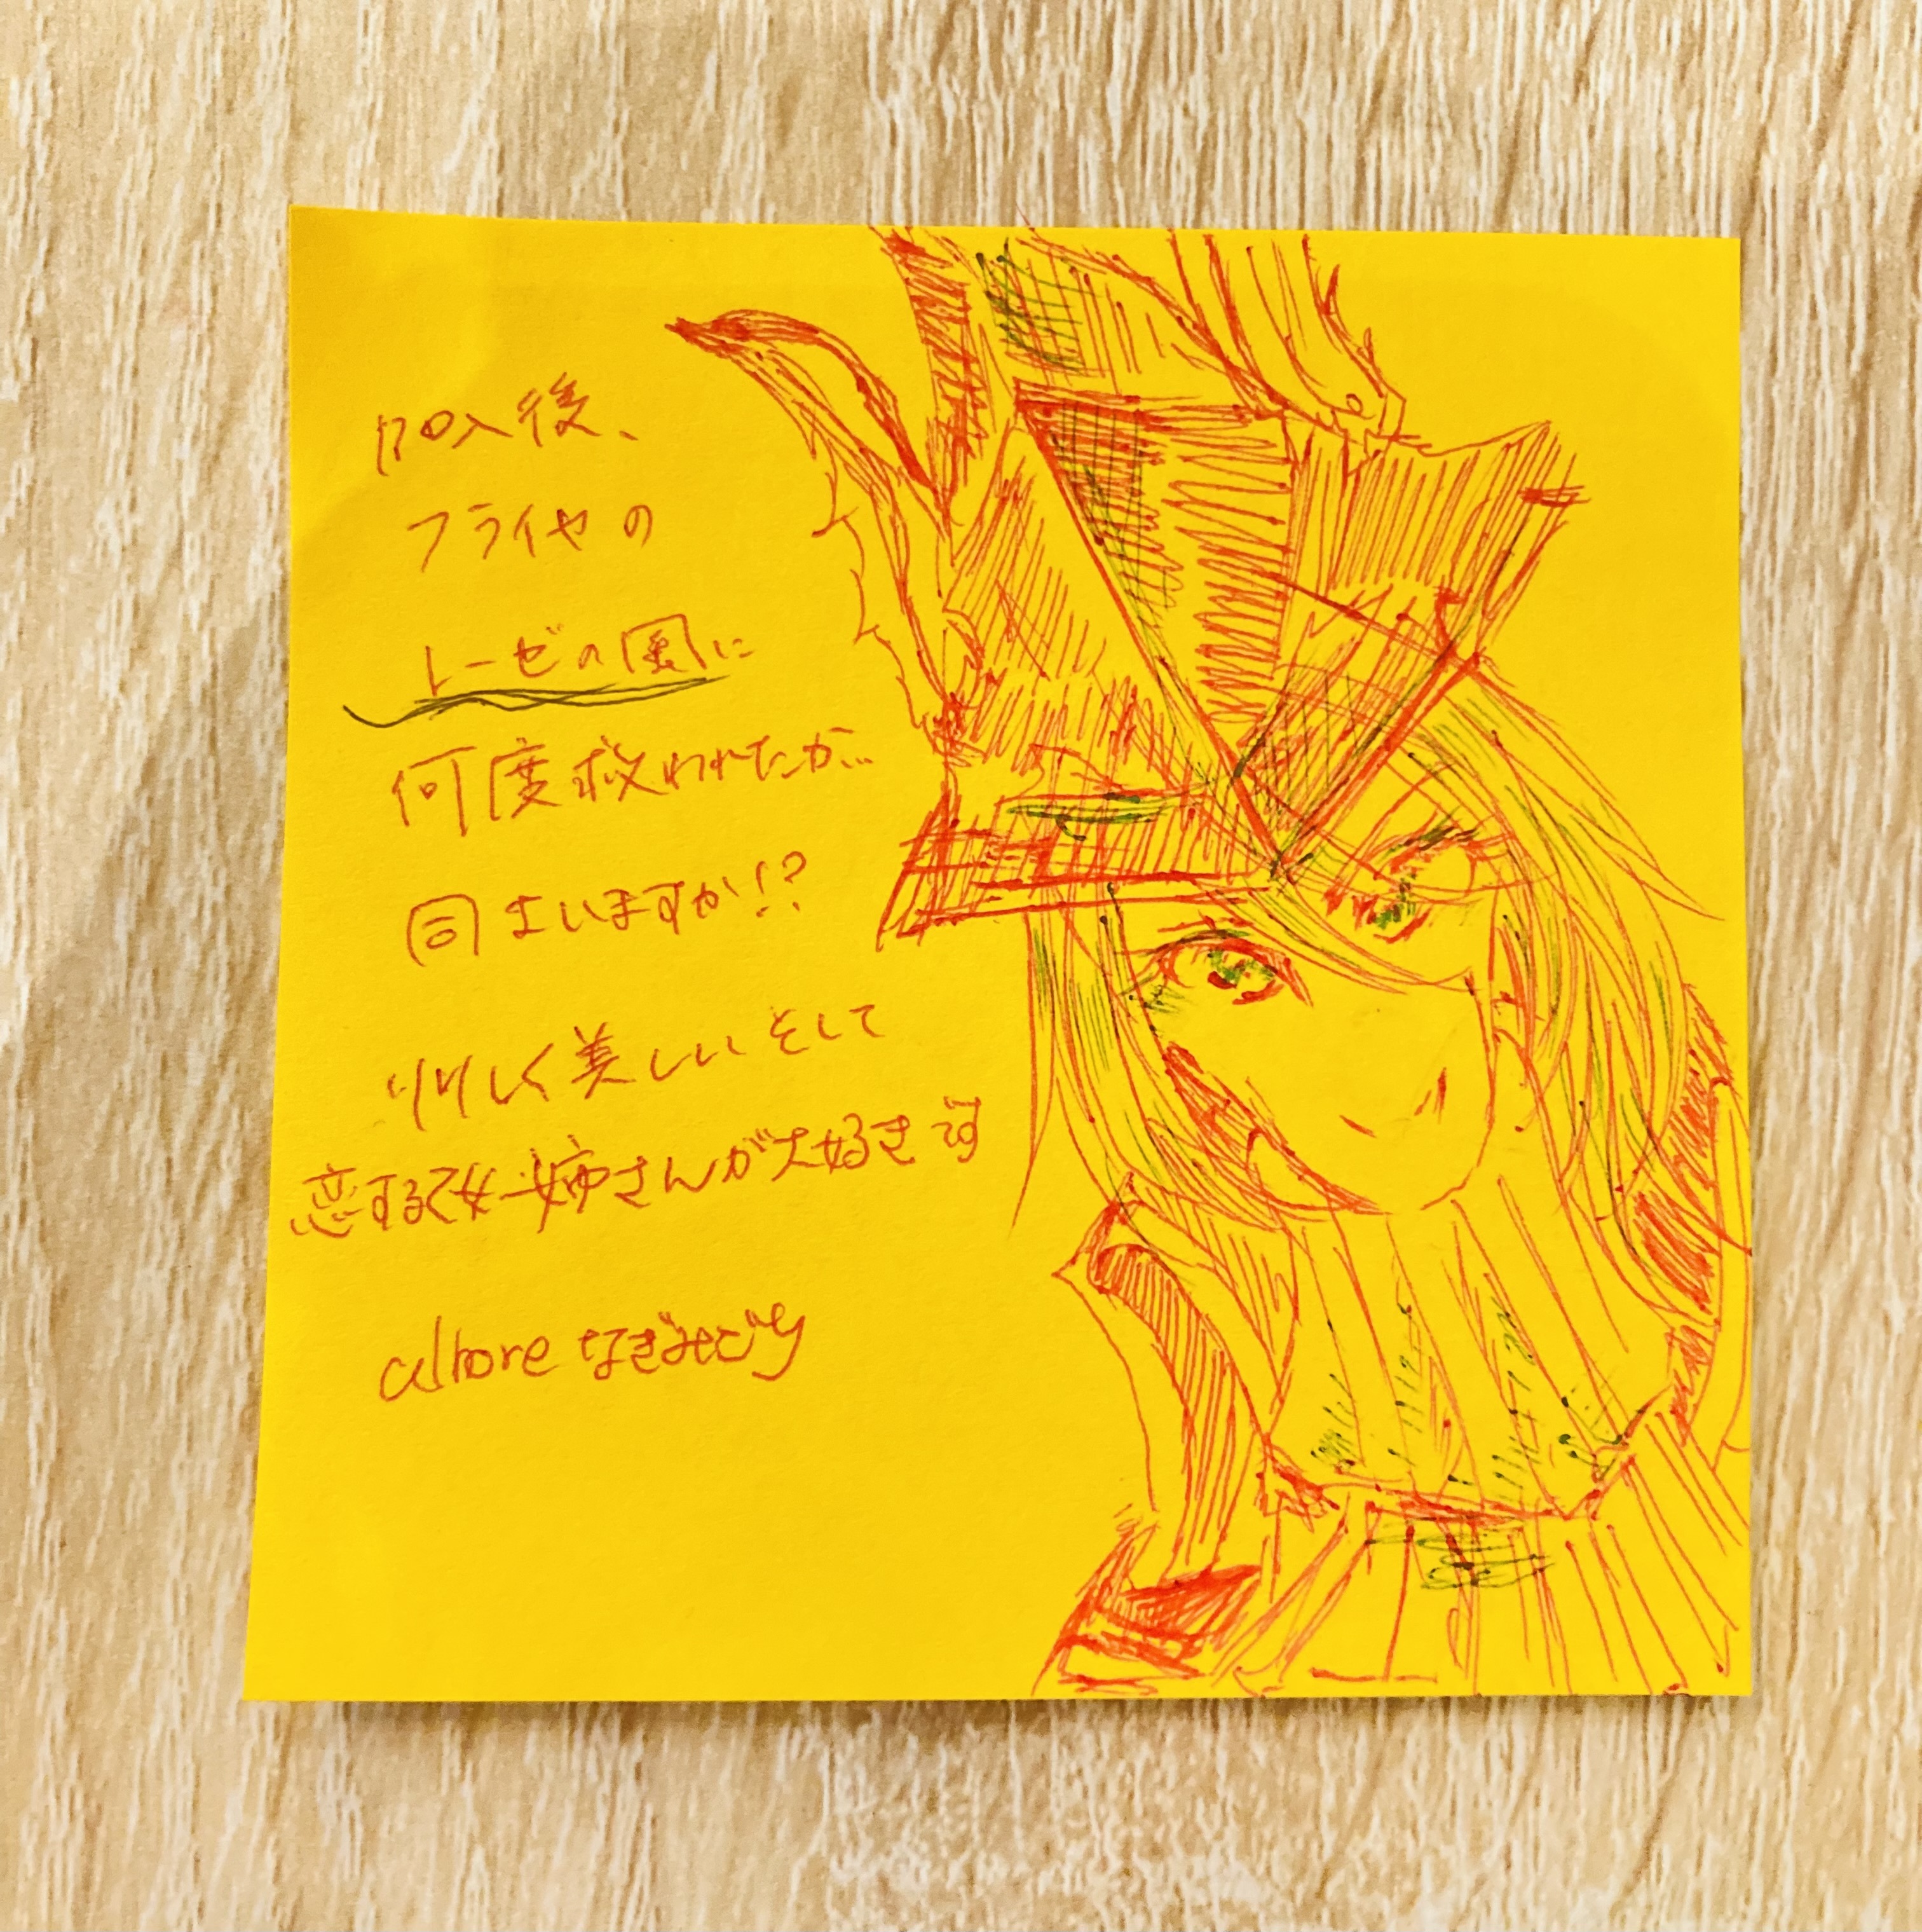 加入後、
フライヤの
レーゼの風に
何度救われたか…
同士いますか!?
りりしく美しい そして
恋する乙女姉さんが大好きです
alhore なぎみどり